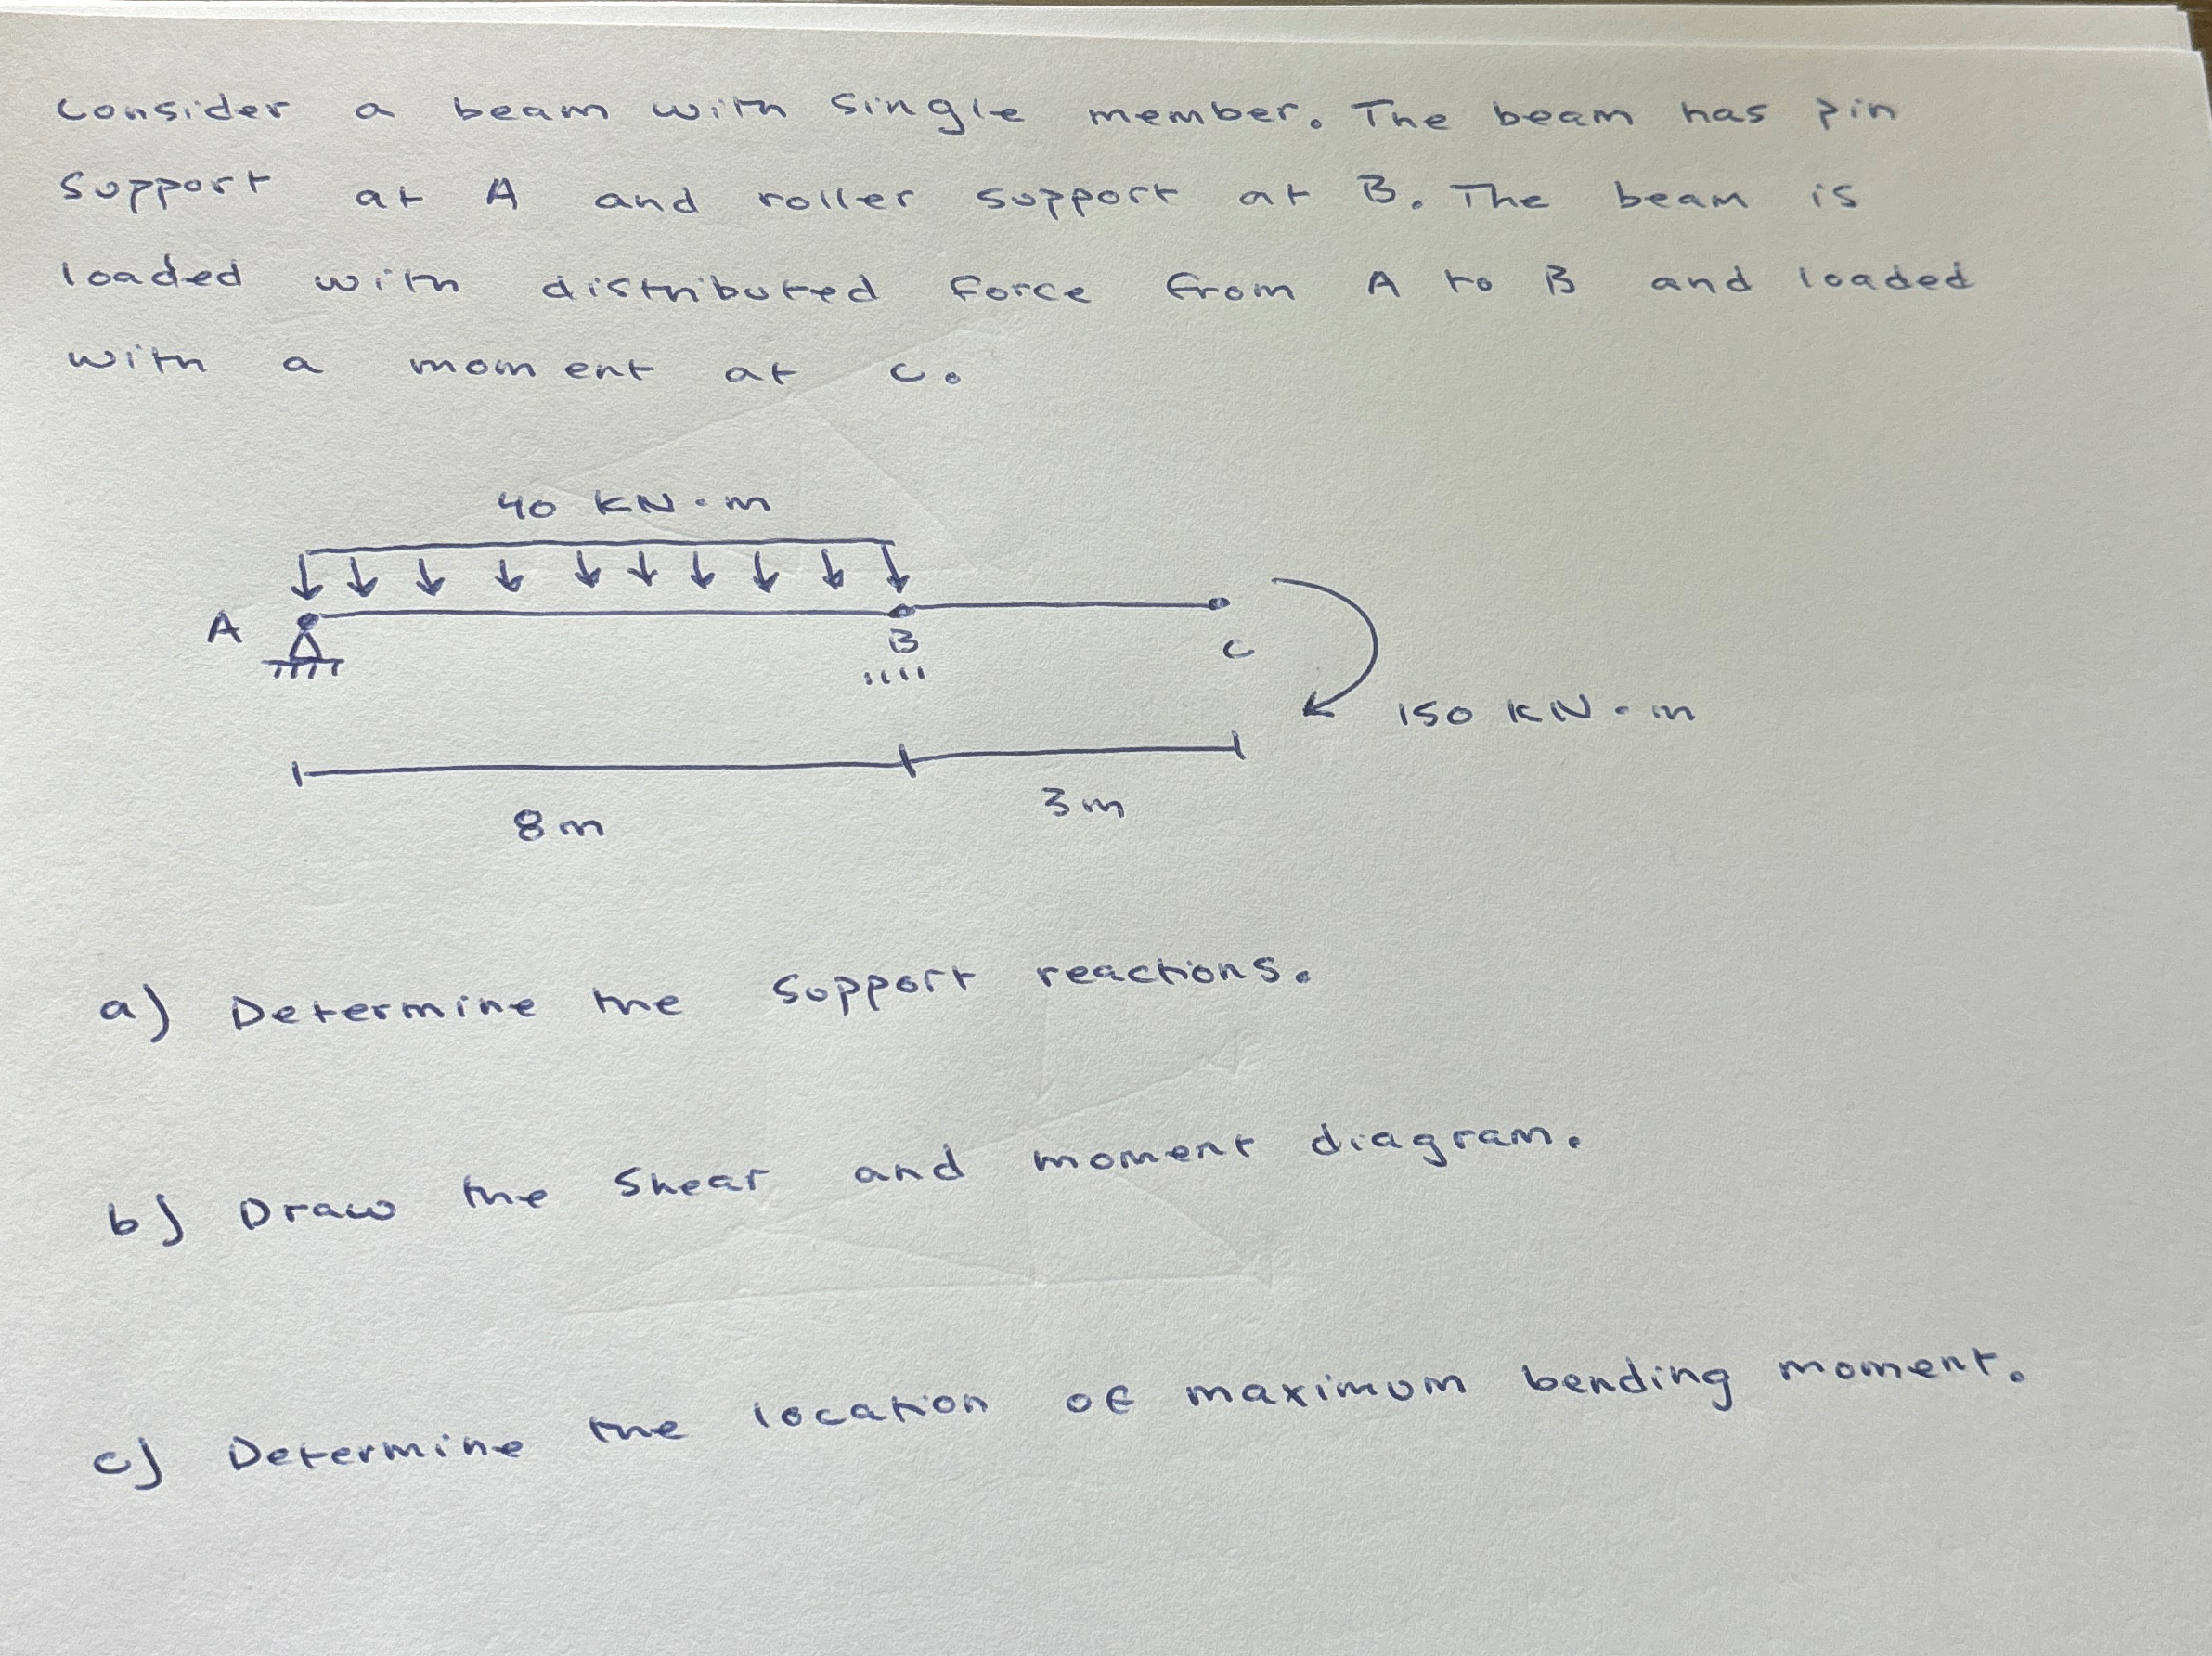 Consider a beam with single member. The beam has pin
support at A and roller support at B. The beam is
loaded with distributed force from A to B and loaded
with a moment at C.
40 KN.m
A
B
C
150 KN.m
8m
3m
a) Determine the support reactions.
b) Draw the shear and moment diagram.
c) Determine the location of maximum bending moment.